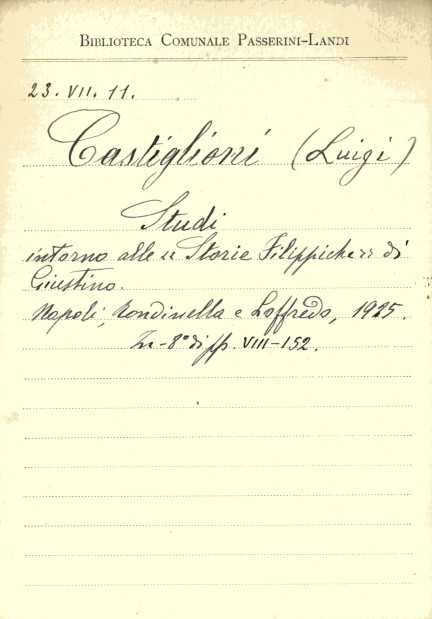 BIBLIOTECA COMUNALE PASSERINI-LANDI
23. VII. 11.
Castiglioni (Luigi)
Studi
intorno alle "Storie Filippiche" di
Giustino.
Napoli, Rondinella e Loffredo, 1925.
In-8° di pp. VIII-152.